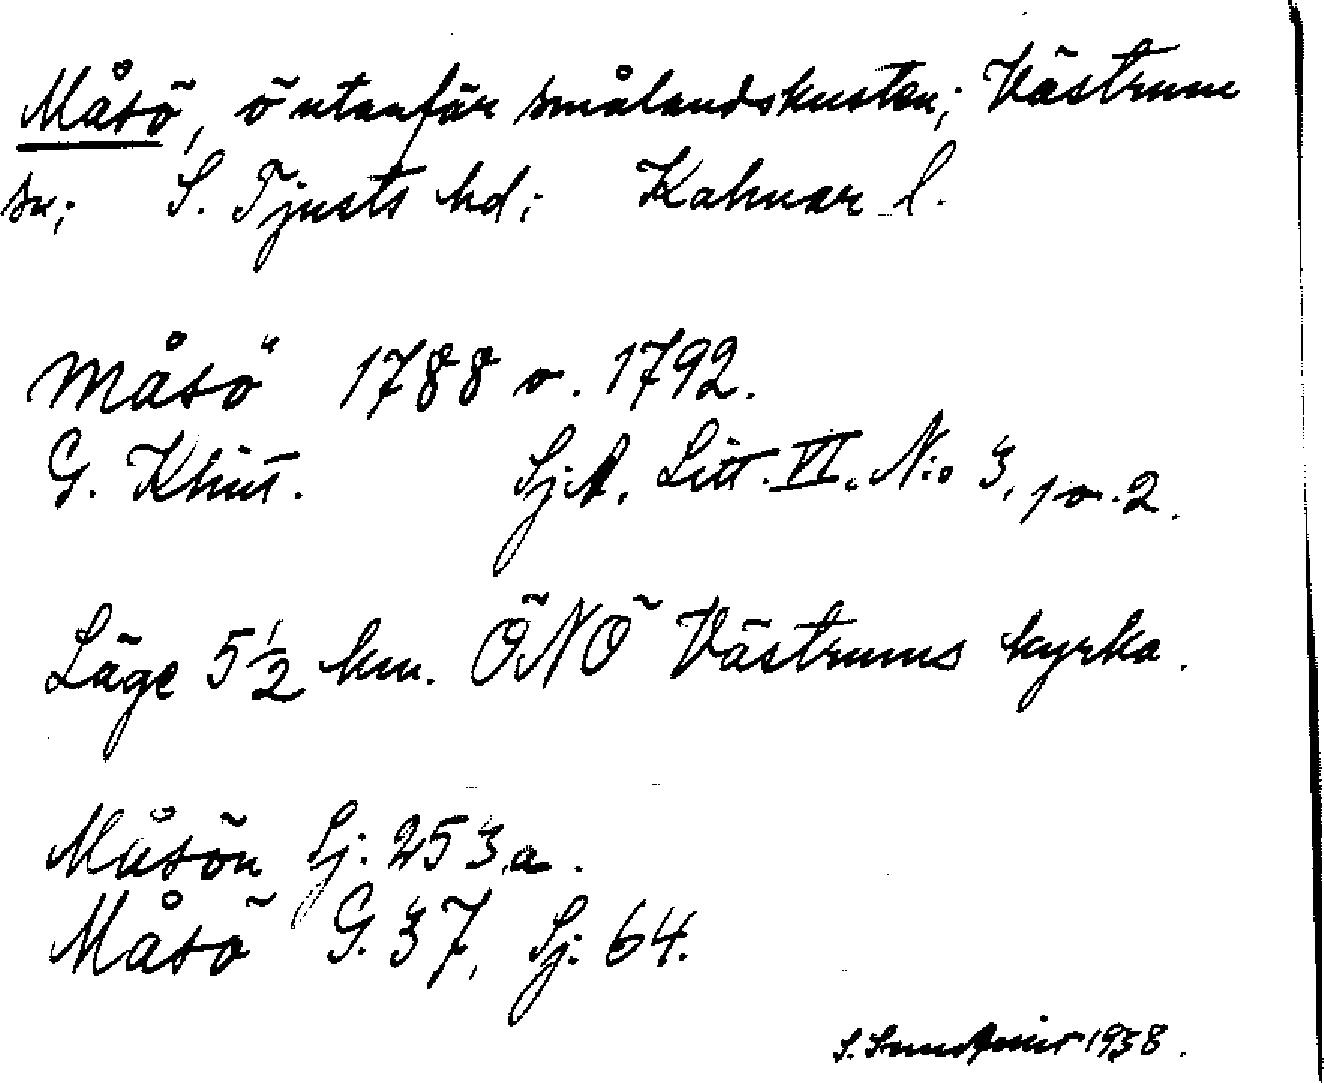 Måsö, ö utanför smålandskusten; Västrum
sn; S. Tjusts hd; Kalmar l.
Måsö 1788 o. 1792.
G. Klint. Sj.A. Litt. VI. N:o 3, 1 o. 2.
Läge 5 1/2 km. ÖNÖ Västrums kyrka.
Måsön Sj: 253a.
Måsö G. 37, Sj: 64.
S. 1938.